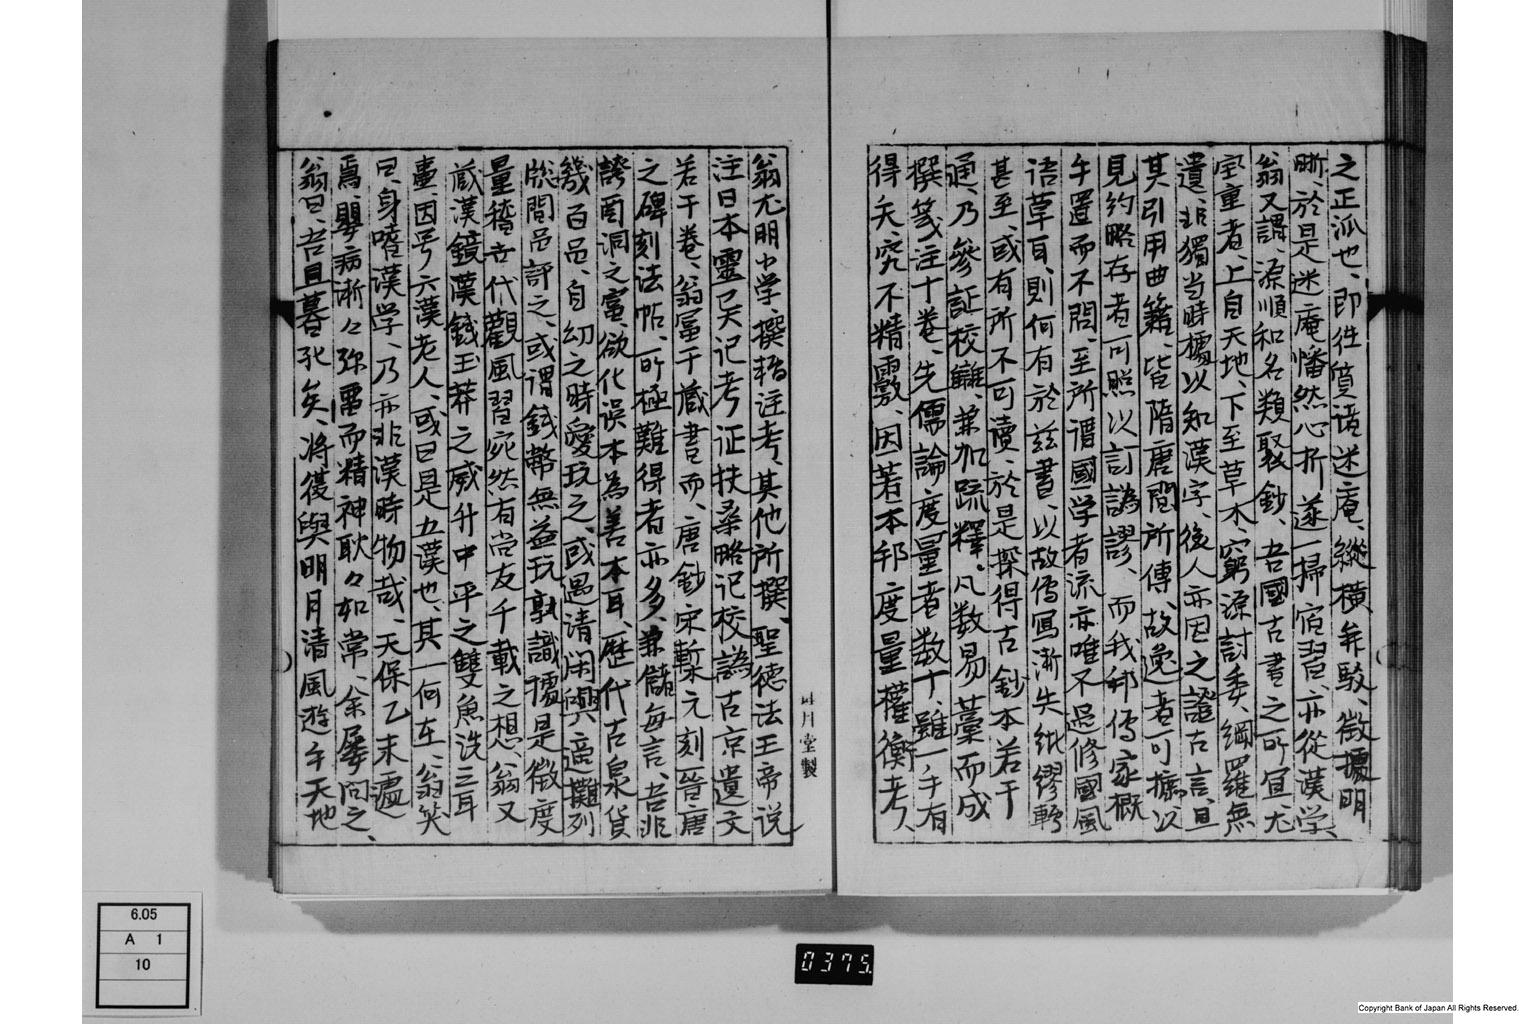 之正派也、即往質諸迷庵、縱横弁駁、徴據明
晰、於是迷庵幡然心折遂一掃宿習、亦從漢学、
翁又謂、源順和名類聚鈔、吾國古書之所宜尤
宝重者、上自天地、下至草木、窮源討委、綱羅無
遺、非獨当時據以知漢字、後人亦因之證古言、且
其引用曲籍、皆隋唐間所傳、故逸者可據以
見約略存者可照以訂譌謬、而我邦儒家概
乎置而不問、至所謂國学者流亦唯不過修國風
語草耳、則何有於玆書、以故傳写漸失紕繆轇
甚至、或有所不可讀、於是探得古鈔本若干
通、乃參証校讎、兼加疏釋。凡数易藁而成
撰箋注十巻、先儒論度量者数十、雖一乎有
得矣、究不精覈、因著本邦度量權衡考、
翁尤明小学、撰轄注考、其他所撰、聖徳法王帝説
注日本靈異記考証扶桑略記校譌古京遺文
若干巻、翁富于蔵書而、唐鈔宋槧元刻晉唐
之碑刻法帖、所極難得者亦多、兼儲毎言、吾非
誇酉洞之富、欲化誤本為善本耳、歴代古泉貨
幾百品、自幼之時愛玩之、或遇清閑興適攤列
牕間品評之、或謂錢幣無益玩孰識據是徴度
量稽古代觀風習宛然有尚友千載之想、翁又
蔵漢鏡漢錢王莽之威斗中平之雙魚洗三耳
壷因号六漢老人、或曰是五漢也、其一何在、翁笑
曰、身嗜漢学、乃亦非漢時物哉、天保乙未遘
焉、嬰病漸々弥畱而精神耿々如常、余屡問之、
翁曰、吾旦暮死矣、将復與明月清風遊乎天地
月堂製
6.05
A 1
10
0375
Copyright Bank of Japan All Rights Reserved.